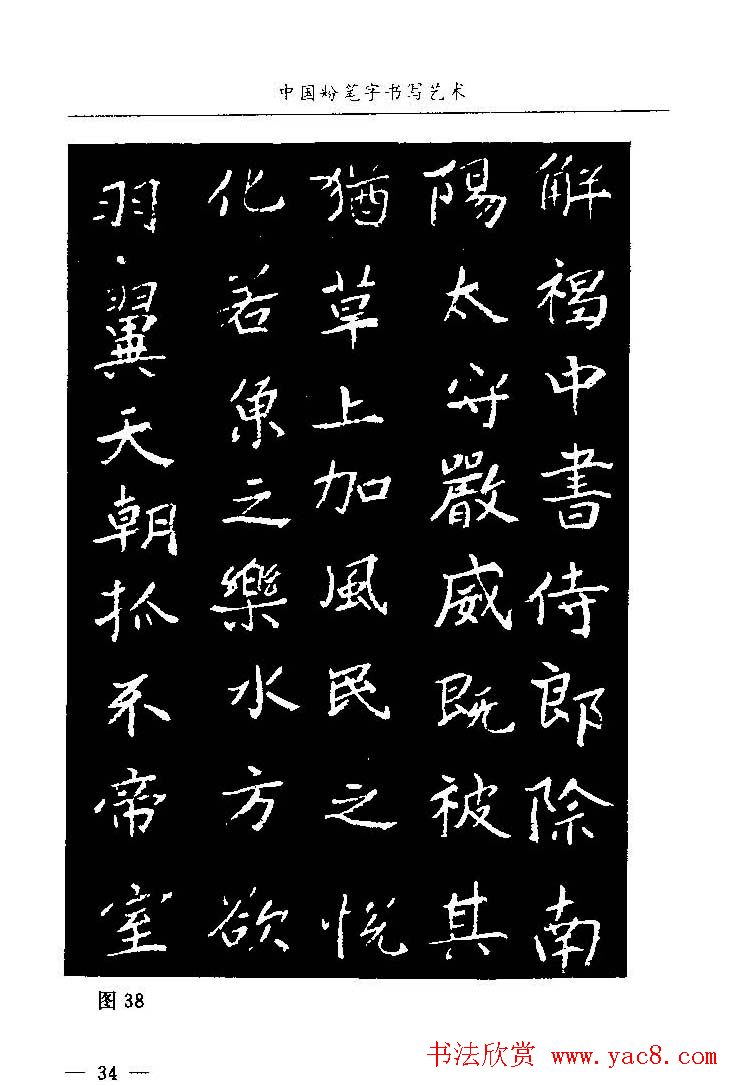 中国粉笔字书写艺术
解褐中書侍郎除南
陽太守嚴威既被其
猶草上加風民之悅
化若魚之樂水方欲
羽翼天朝抓牙帝室
图 38
— 34 —
书法欣赏 www.yac8.com